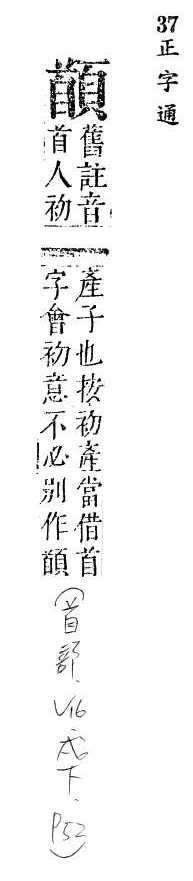 37正字通
舊註音
首人初
產子也按初產當借首
字會初意不必別作
(首部.V16.戌下.P52)